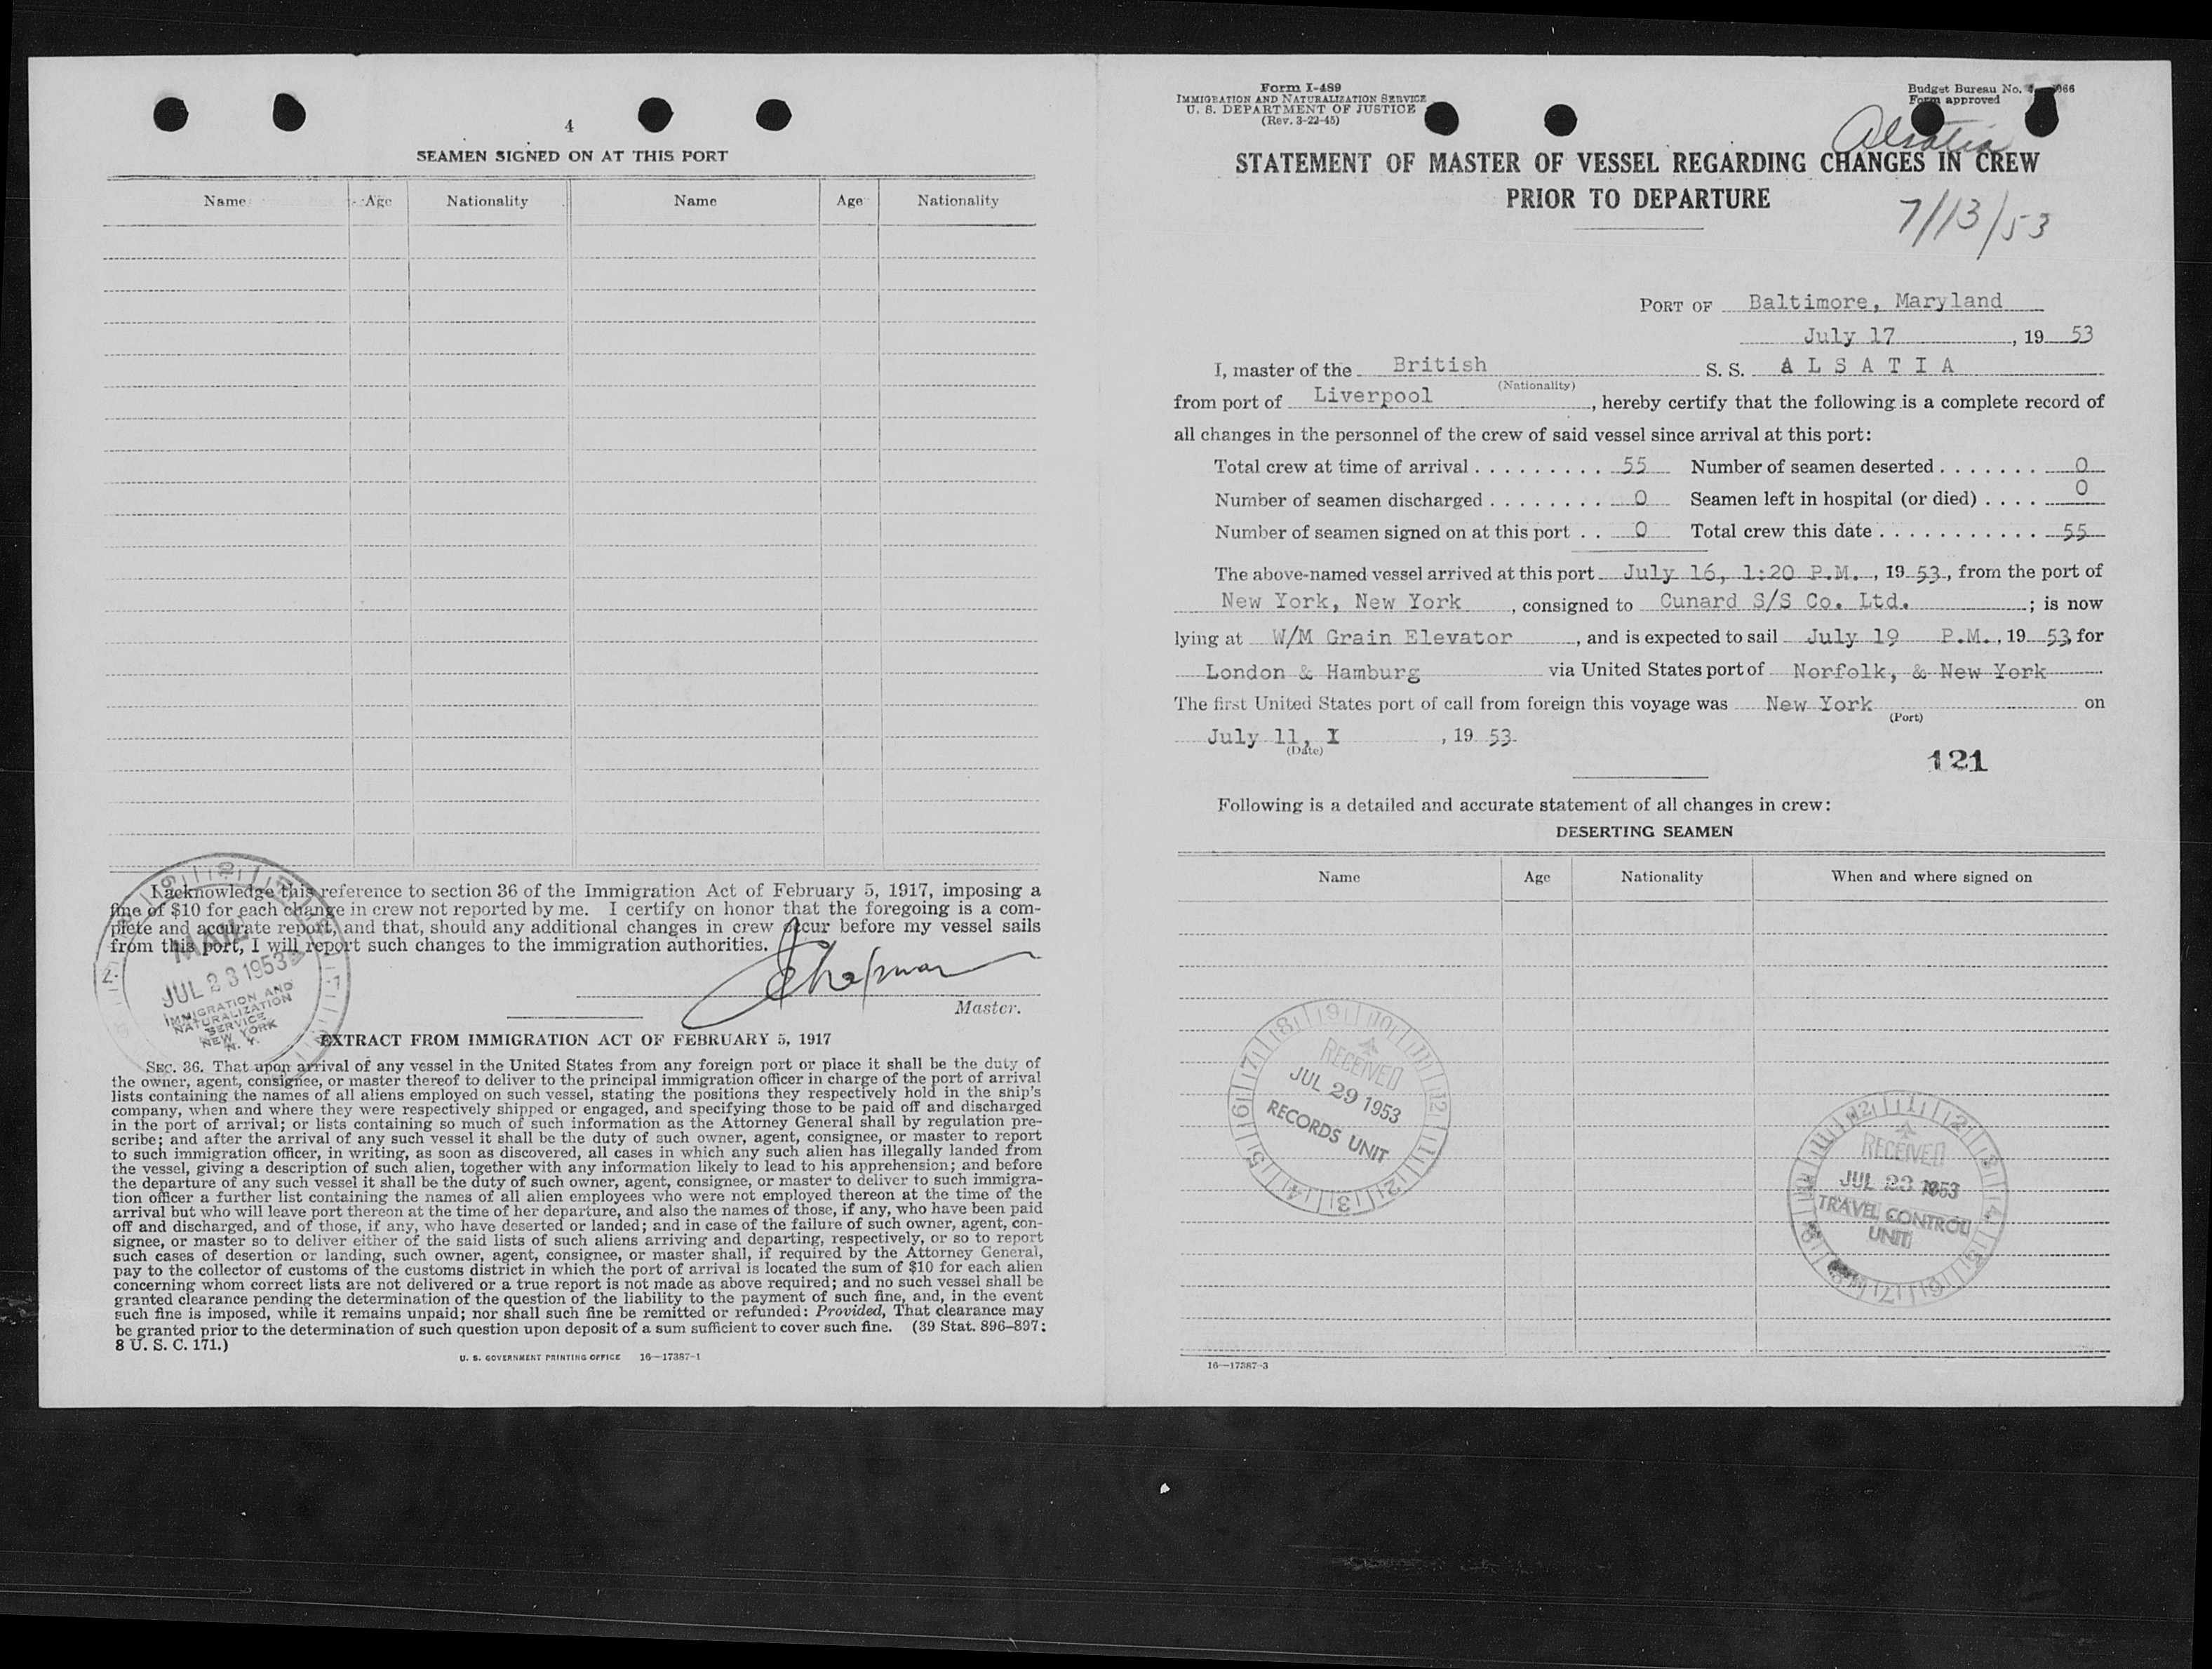 4
SEAMEN SIGNED ON AT THIS PORT
Name Age Nationality Name Age Nationality
I acknowledge this reference to section 36 of the Immigration Act of February 5, 1917, imposing a
fine of $10 for each change in crew not reported by me. I certify on honor that the foregoing is a com-
plete and accurate report, and that, should any additional changes in crew occur before my vessel sails
from this port, I will report such changes to the immigration authorities.
MAIL
JUL 23 1953
IMMIGRATION AND
NATURALIZATION
SERVICE
NEW YORK
N. Y.
Chapman
Master.
EXTRACT FROM IMMIGRATION ACT OF FEBRUARY 5, 1917
SEC. 36. That upon arrival of any vessel in the United States from any foreign port or place it shall be the duty of
the owner, agent, consignee, or master thereof to deliver to the principal immigration officer in charge of the port of arrival
lists containing the names of all aliens employed on such vessel, stating the positions they respectively hold in the ship's
company, when and where they were respectively shipped or engaged, and specifying those to be paid off and discharged
in the port of arrival; or lists containing so much of such information as the Attorney General shall by regulation pre-
scribe; and after the arrival of any such vessel it shall be the duty of such owner, agent, consignee, or master to report
to such immigration officer, in writing, as soon as discovered, all cases in which any such alien has illegally landed from
the vessel, giving a description of such alien, together with any information likely to lead to his apprehension; and before
the departure of any such vessel it shall be the duty of such owner, agent, consignee, or master to deliver to such immigra-
tion officer a further list containing the names of all alien employees who were not employed thereon at the time of the
arrival but who will leave port thereon at the time of her departure, and also the names of those, if any, who have been paid
off and discharged, and of those, if any, who have deserted or landed; and in case of the failure of such owner, agent, con-
signee, or master so to deliver either of the said lists of such aliens arriving and departing, respectively, or so to report
such cases of desertion or landing, such owner, agent, consignee, or master shall, if required by the Attorney General,
pay to the collector of customs of the customs district in which the port of arrival is located the sum of $10 for each alien
concerning whom correct lists are not delivered or a true report is not made as above required; and no such vessel shall be
granted clearance pending the determination of the question of the liability to the payment of such fine, and, in the event
such fine is imposed, while it remains unpaid; nor shall such fine be remitted or refunded: Provided, That clearance may
be granted prior to the determination of such question upon deposit of a sum sufficient to cover such fine. (39 Stat. 896–897;
8 U. S. C. 171.)
U. S. GOVERNMENT PRINTING OFFICE 16—17387-1
Form I-489
IMMIGRATION AND NATURALIZATION SERVICE
U. S. DEPARTMENT OF JUSTICE
(Rev. 3-22-45)
Budget Bureau No.
Form approved
Alsatia
STATEMENT OF MASTER OF VESSEL REGARDING CHANGES IN CREW
PRIOR TO DEPARTURE
7/13/53
PORT OF Baltimore, Maryland
July 17, 19 53
I, master of the British S. S. A L S A T I A
(Nationality)
from port of Liverpool, hereby certify that the following is a complete record of
all changes in the personnel of the crew of said vessel since arrival at this port:
Total crew at time of arrival . . . . . . . . . 55 Number of seamen deserted . . . . . . . 0
Number of seamen discharged . . . . . . . . 0 Seamen left in hospital (or died) . . . . 0
Number of seamen signed on at this port . . 0 Total crew this date . . . . . . . . . . . . 55
The above-named vessel arrived at this port July 16, 1:20 P.M., 19 53, from the port of
New York, New York, consigned to Cunard S/S Co. Ltd.; is now
lying at W/M Grain Elevator, and is expected to sail July 19 P.M., 19 53, for
London & Hamburg via United States port of Norfolk, & New York
The first United States port of call from foreign this voyage was New York on
(Port)
July 11, I, 19 53
(Date)
121
Following is a detailed and accurate statement of all changes in crew:
DESERTING SEAMEN
Name Age Nationality When and where signed on
RECEIVED
JUL 29 1953
RECORDS UNIT
RECEIVED
JUL 23 1953
TRAVEL CONTROL
UNIT
16—17387-3